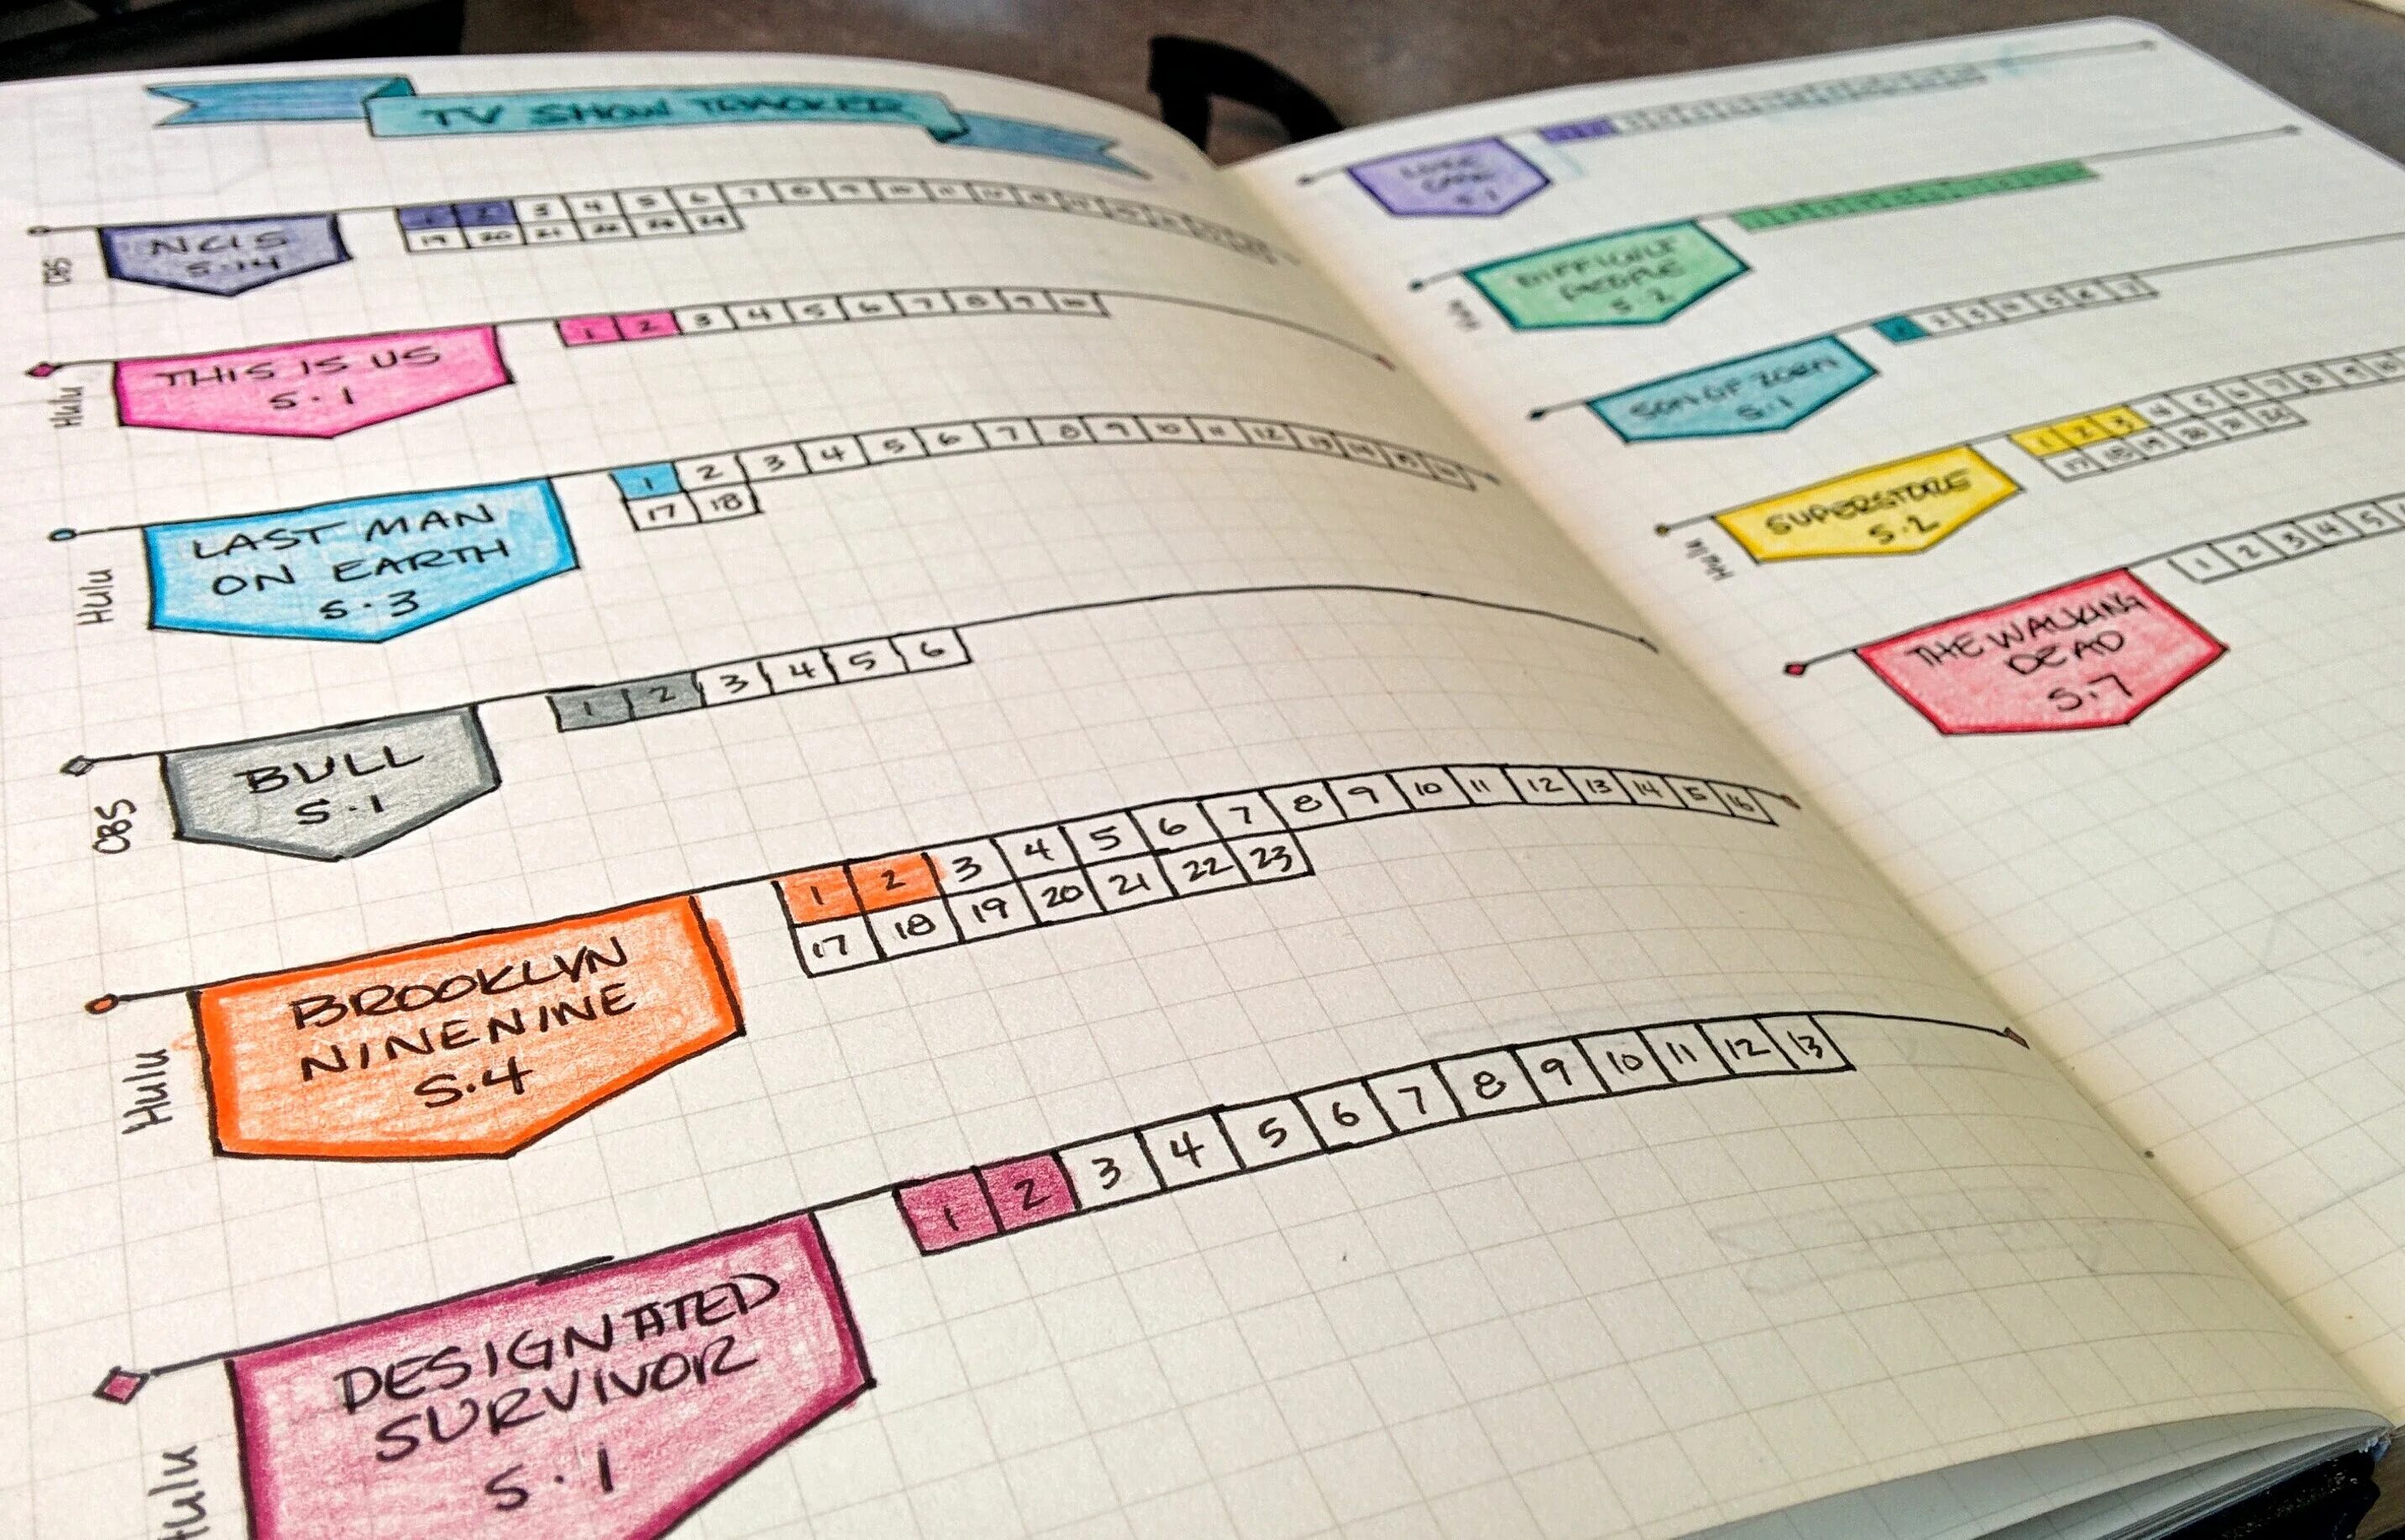 TV SHOW TRACKER
1 2 3 4 5 6 7 8 9 10 11 12
19 20 21 22 23 24
NCIS
S.14
CBS
1 2 3 4 5 6 7 8 9 10
THIS IS US
S.1
Hulu
1 2 3 4 5 6 7 8 9 10 11 12 13 14 15 16
17 18
LAST MAN
ON EARTH
S.3
Hulu
1 2 3 4 5 6
BULL
S.1
CBS
1 2 3 4 5 6 7 8 9 10 11 12 13 14 15 16
17 18 19 20 21 22 23
BROOKLYN
NINENINE
S.4
Hulu
1 2 3 4 5 6 7 8 9 10 11 12 13
DESIGNATED
SURVIVOR
S.1
Hulu
DIFFICULT
PEOPLE
S.2
Hulu
2 3 4 5 6 7
SON OF ZORN
S.1
1 2 3 4 5 6 7 8 9 10
17 18 19 20 21 22
SUPERSTORE
S.2
Hulu
1 2 3 4 5
THE WALKING
DEAD
S.7